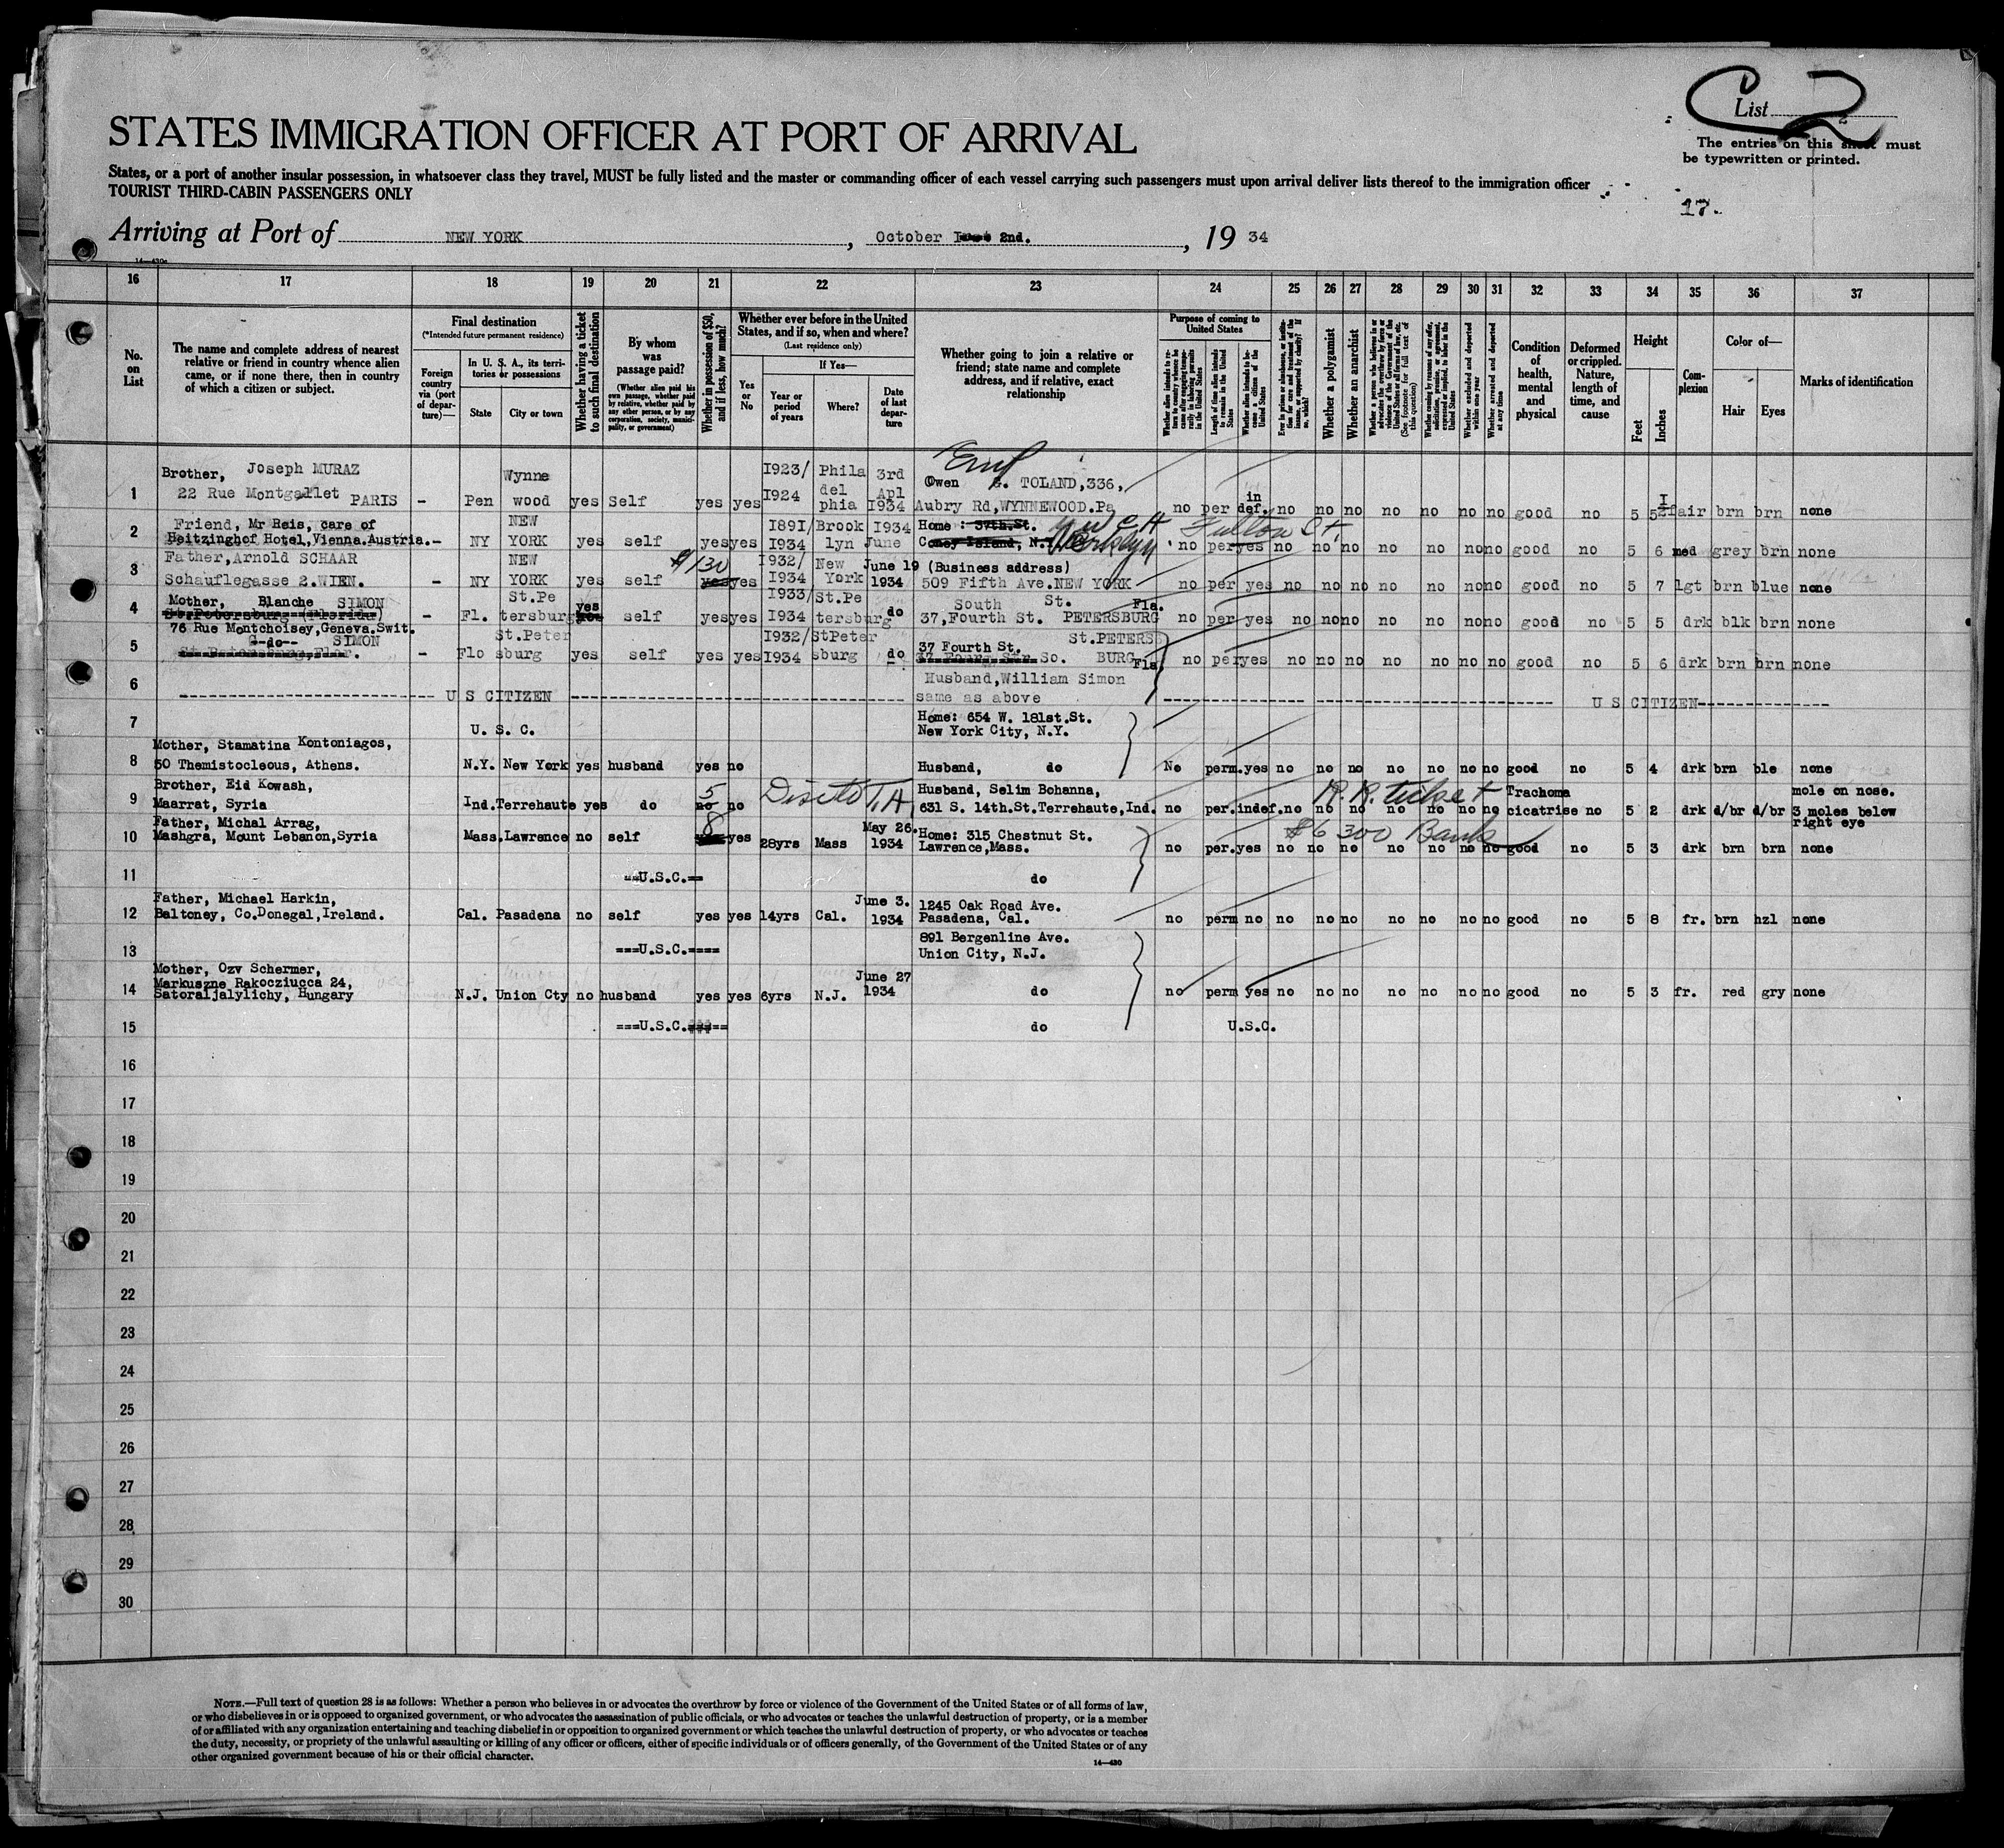 List 2
The entries on this sheet must
be typewritten or printed.
STATES IMMIGRATION OFFICER AT PORT OF ARRIVAL
States, or a port of another insular possession, in whatsoever class they travel, MUST be fully listed and the master or commanding officer of each vessel carrying such passengers must upon arrival deliver lists thereof to the immigration officer
TOURIST THIRD-CABIN PASSENGERS ONLY
17.
Arriving at Port of NEW YORK, October 2nd., 19 34
16 17 18 19 20 21 22 23 24 25 26 27 28 29 30 31 32 33 34 35 36 37
No. on List
The name and complete address of nearest
relative or friend in country whence alien
came, or if none there, then in country
of which a citizen or subject.
Final destination
(*Intended future permanent residence)
Foreign country via (port of departure)—
In U. S. A., its territories or possessions
State
City or town
Whether having a ticket to such final destination
By whom was passage paid?
(Whether alien paid his own passage, whether paid by relative, whether paid by any other person, or by any corporation, society, municipality, or government)
Whether in possession of $50, and if less, how much?
Whether ever before in the United States, and if so, when and where?
(Last residence only)
Yes or No
If Yes—
Year or period of years
Where?
Date of last departure
Whether going to join a relative or
friend; state name and complete
address, and if relative, exact
relationship
Purpose of coming to United States
Length of time alien intends to remain in the United States
Whether alien intends to become a citizen of the United States
Whether a polygamist
Whether an anarchist
Whether excluded and deported within one year
Whether arrested and deported at any time
Condition of health, mental and physical
Deformed or crippled. Nature, length of time, and cause
Height
Feet
Inches
Complexion
Color of—
Hair
Eyes
Marks of identification
1 Brother, Joseph MURAZ 22 Rue Montgallet PARIS - Pen Wynne wood yes Self yes yes I923/ I924 Phila del phia 3rd Apl I934 Owen G. TOLAND,336, Aubry Rd,WYNNEWOOD.Pa no per in def. no no no no no no no good no 5 5 fair brn brn none
2 Friend, Mr Reis, care of Heitzinghof Hotel,Vienna.Austria.- NY NEW YORK yes self yes yes I89I/ I934 Brook lyn I934 June Home : 37th.St. Coney Island, N.Y. Fulton St. no per yes no no no no no no no good no 5 6 med grey brn none
3 Father,Arnold SCHAAR Schauflegasse 2.WIEN. - NY NEW YORK yes self $130 yes yes I932/ I934 New York June 19 1934 (Business address) 509 Fifth Ave.NEW YORK no per yes no no no no no no no good no 5 7 lgt brn blue none
4 Mother, Blanche SIMON St.Petersburg (Florida) - Fl. St.Pe tersburg yes self yes yes I933/ I934 St.Pe tersburg do South St. Fla. 37,Fourth St. PETERSBURG no per yes no no no no no no no good no 5 5 drk blk brn none
5 76 Rue Montchoisey,Geneva.Swit. --do-- SIMON St.Petersburg,Flor. - Flo St.Peter sburg yes self yes yes I932/ I934 StPeter sburg do 37 Fourth St. So. St.PETERS BURG Fla. no per yes no no no no no no no good no 5 6 drk brn brn none
6 U S CITIZEN Husband,William Simon same as above U S CITIZEN
7 U. S. C. Home: 654 W. 181st.St. New York City, N.Y.
8 Mother, Stamatina Kontoniagos, 50 Themistocleous, Athens. N.Y. New York yes husband yes no Husband, do No perm. yes no no no no no no no good no 5 4 drk brn ble none
9 Brother, Eid Kowash, Maarrat, Syria Ind. Terrehaute yes do 5 no no Husband, Selim Bohanna, 631 S. 14th.St.Terrehaute,Ind. R.R. ticket no per. indef. no no no no no no no Trachoma cicatrise no 5 2 drk d/br d/br mole on nose. 3 moles below right eye
10 Father, Michal Arrag, Mashgra, Mount Lebanon,Syria Mass. Lawrence no self 8 yes yes 28yrs Mass May 26. 1934 Home: 315 Chestnut St. Lawrence,Mass. $6300 Bank no per. yes no no no no no no no good no 5 3 drk brn brn none
11 ==U.S.C.== do
12 Father, Michael Harkin, Baltoney, Co.Donegal,Ireland. Cal. Pasadena no self yes yes 14yrs Cal. June 3. 1934 1245 Oak Road Ave. Pasadena, Cal. no perm no no no no no no no no good no 5 8 fr. brn hzl none
13 ===U.S.C.==== 891 Bergenline Ave. Union City, N.J.
14 Mother, Ozv Schermer, Markuszne Rakocziucca 24, Satoraljalylichy, Hungary N.J. Union Cty no husband yes yes 6yrs N.J. June 27 1934 do no perm yes no no no no no no no good no 5 3 fr. red gry none
15 ===U.S.C.==== do U.S.C.
16
17
18
19
20
21
22
23
24
25
26
27
28
29
30
NOTE.—Full text of question 28 is as follows: Whether a person who believes in or advocates the overthrow by force or violence of the Government of the United States or of all forms of law,
or who disbelieves in or is opposed to organized government, or who advocates the assassination of public officials, or who advocates or teaches the unlawful destruction of property, or is a member
of or affiliated with any organization entertaining and teaching disbelief in or opposition to organized government or which teaches the unlawful destruction of property, or who advocates or teaches
the duty, necessity, or propriety of the unlawful assaulting or killing of any officer or officers, either of specific individuals or of officers generally, of the Government of the United States or of any
other organized government because of his or their official character.
14—430